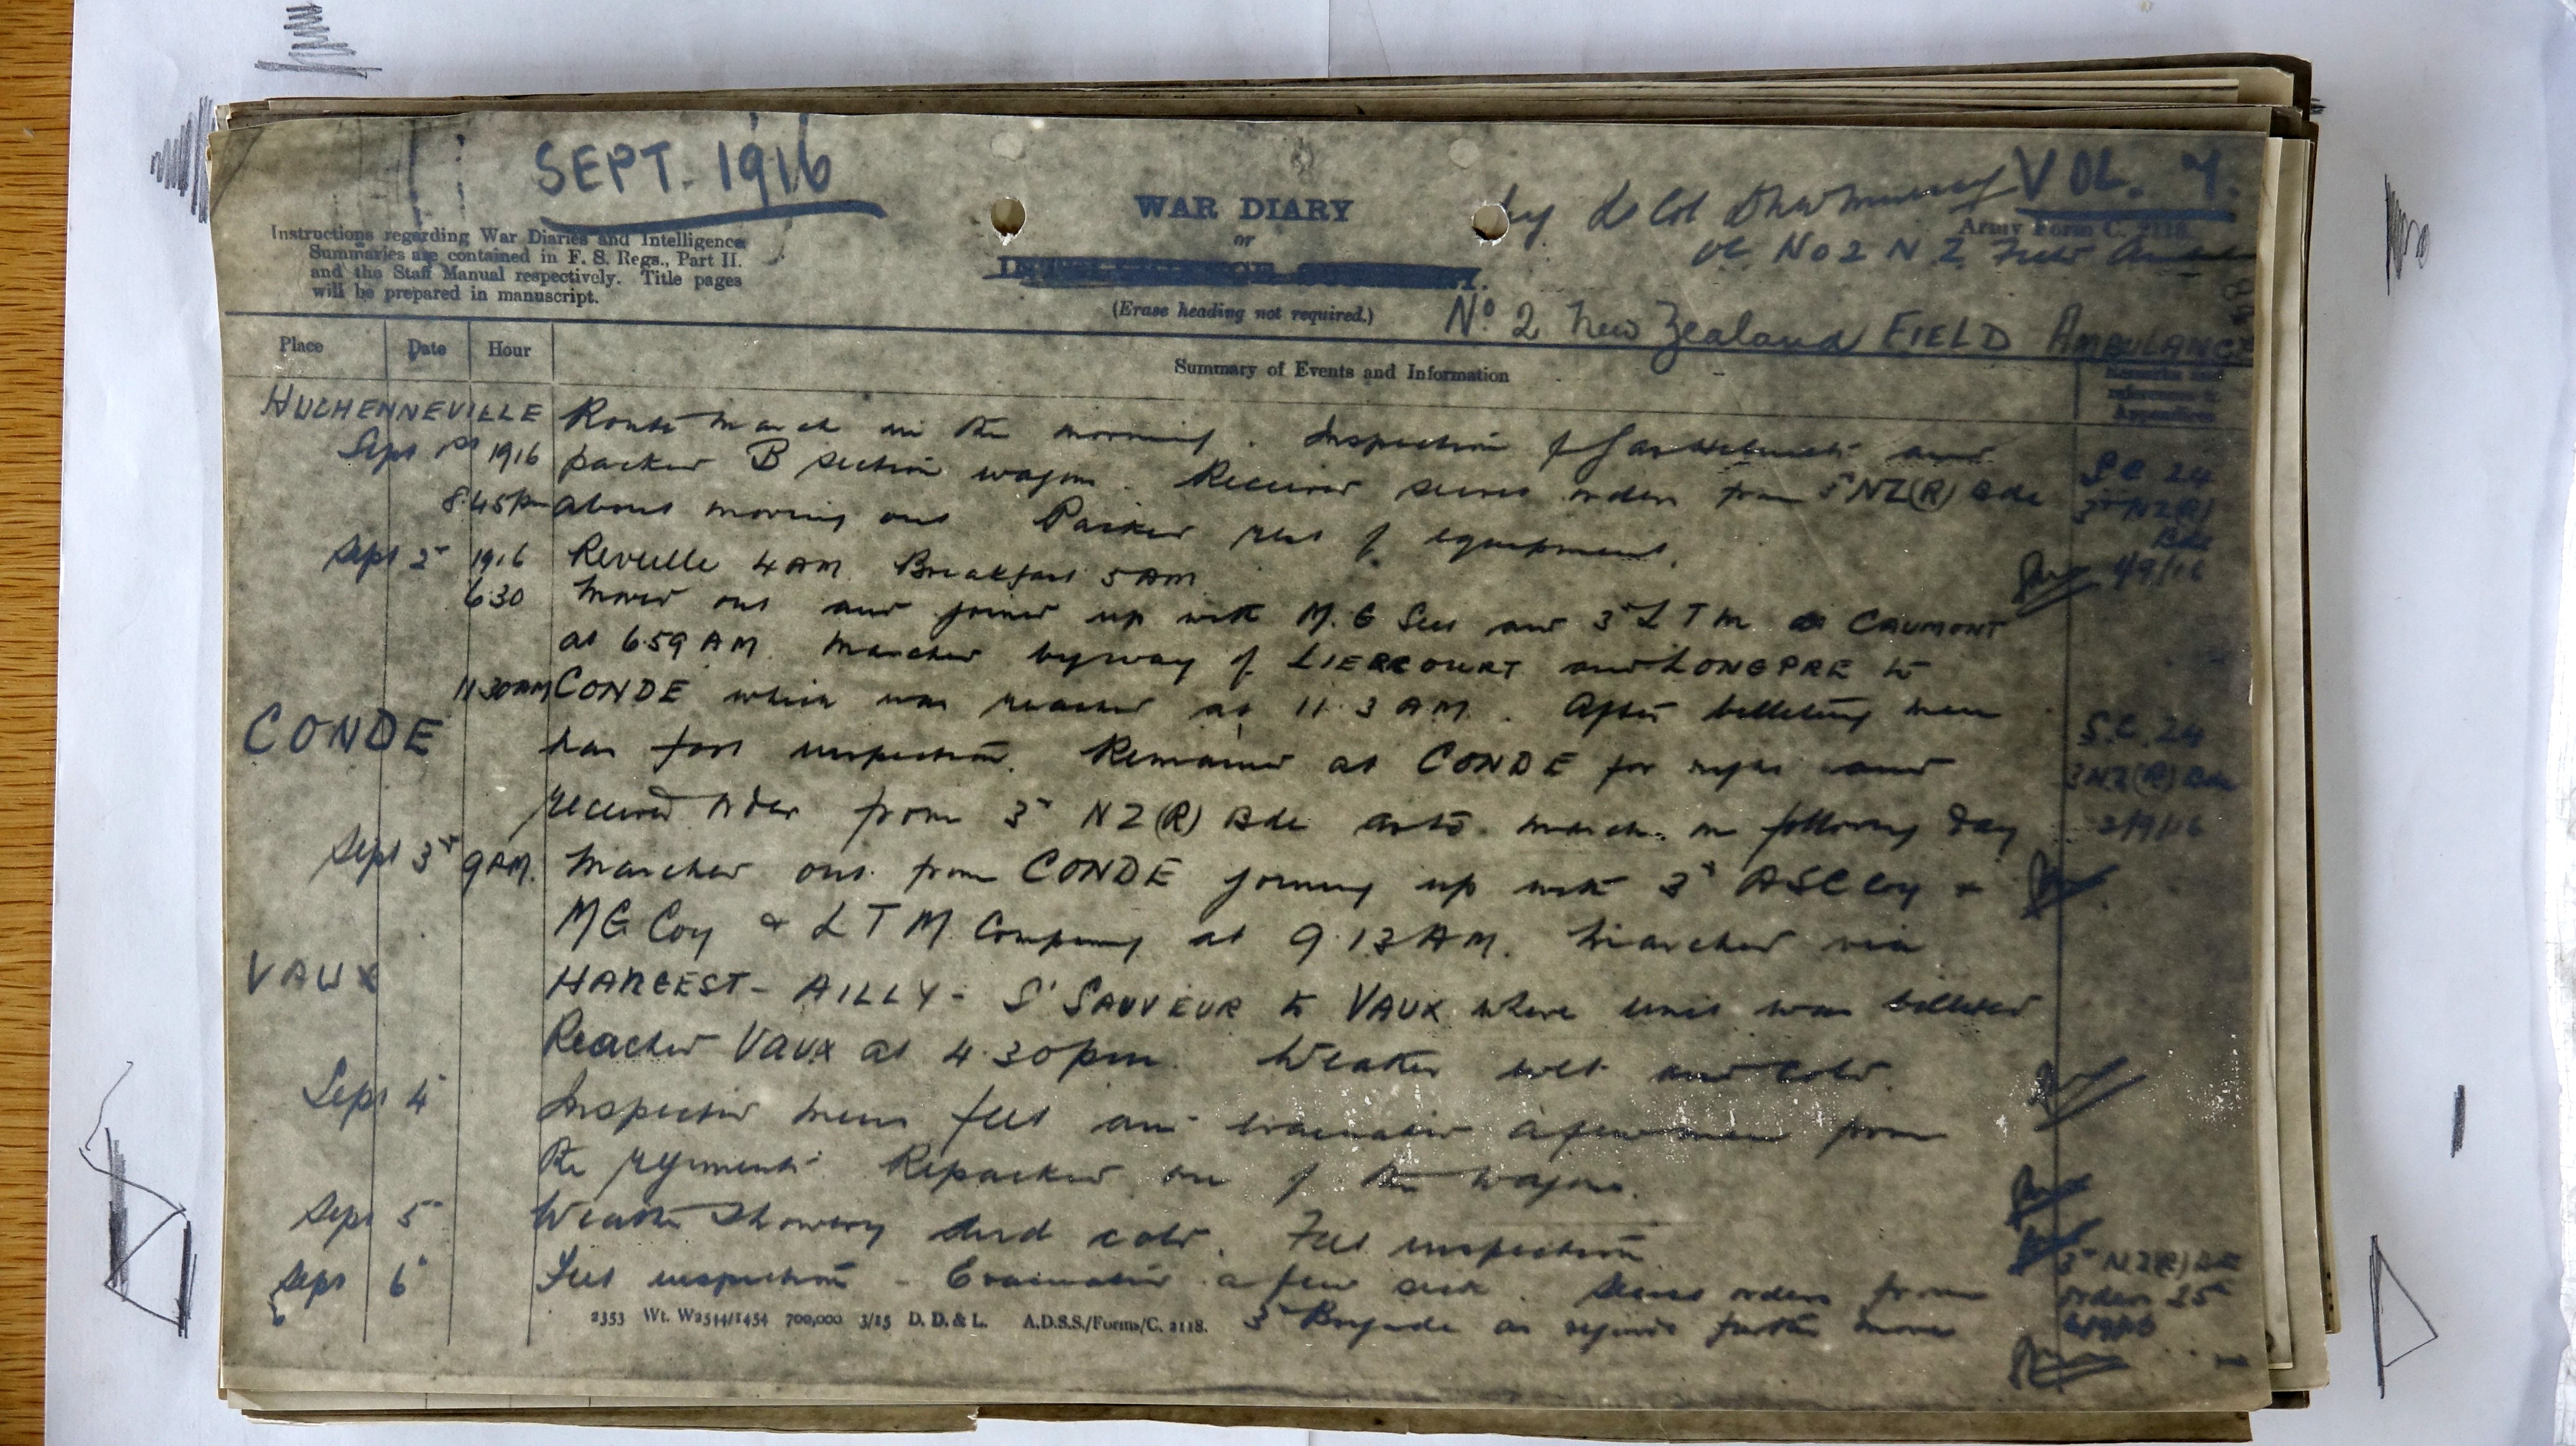 SEPT. 1916
VOL. 7.
WAR DIARY
or
INTELLIGENCE SUMMARY.
(Erase heading not required.)
Instructions regarding War Diaries and Intelligence
Summaries are contained in F. S. Regs., Part II.
and the Staff Manual respectively. Title pages
will be prepared in manuscript.
by Lt Col
Army Form C. 2118.
OC No 2 N Z Field
No. 2 New Zealand FIELD AMBULANCE
Place Date Hour Summary of Events and Information Remarks and
references to
Appendices
HUCHENNEVILLE Route March in the morning. Inspection of Gas Helmets and
Sept 1st 1916 packed B section wagon. Received secret orders from 3rd NZ(R) Bde S C 24
3rd NZ(R)
Bde
1/9/16
8.45pm about moving out Packed rest of equipment.
Sept 2nd 1916 Reveille 4 AM. Breakfast 5 AM
6.30 Moved out and joined up with M.G Sect and 3rd L T M at CAUMONT
at 6.59 AM. Marched by way of LIERCOURT and LONGPRE to
11.30AM CONDE which was reached at 11.3 AM. After billeting men
CONDE had foot inspection. Remained at CONDE for night and S.C. 24
3 NZ(R) Bde
2/9/16
received order from 3rd NZ(R) Bde as to march on following day
Sept 3rd 9AM. Marched out from CONDE joining up with 3rd ASC Coy &
MG Coy & L T M Company at 9.13 AM. Marched via
VAUX HANGEST - AILLY - St SAUVEUR to VAUX where unit was billeted
Reached VAUX at 4.30pm. Weather wet and cold.
Sept 4 Inspected mens feet and evacuated a few men from
the regiments. Repacked one of the wagons.
Sept 5 Weather Showery and cold. Feet inspection
Sept 6 Feet inspection - Evacuated a few sick. Secret orders from 3rd NZ(R) BDE
order 25
6/9/16
3rd Brigade as regards further move
2353 Wt. W2514/1454 700,000 3/15 D. D. & L. A.D.S.S./Forms/C. 2118.